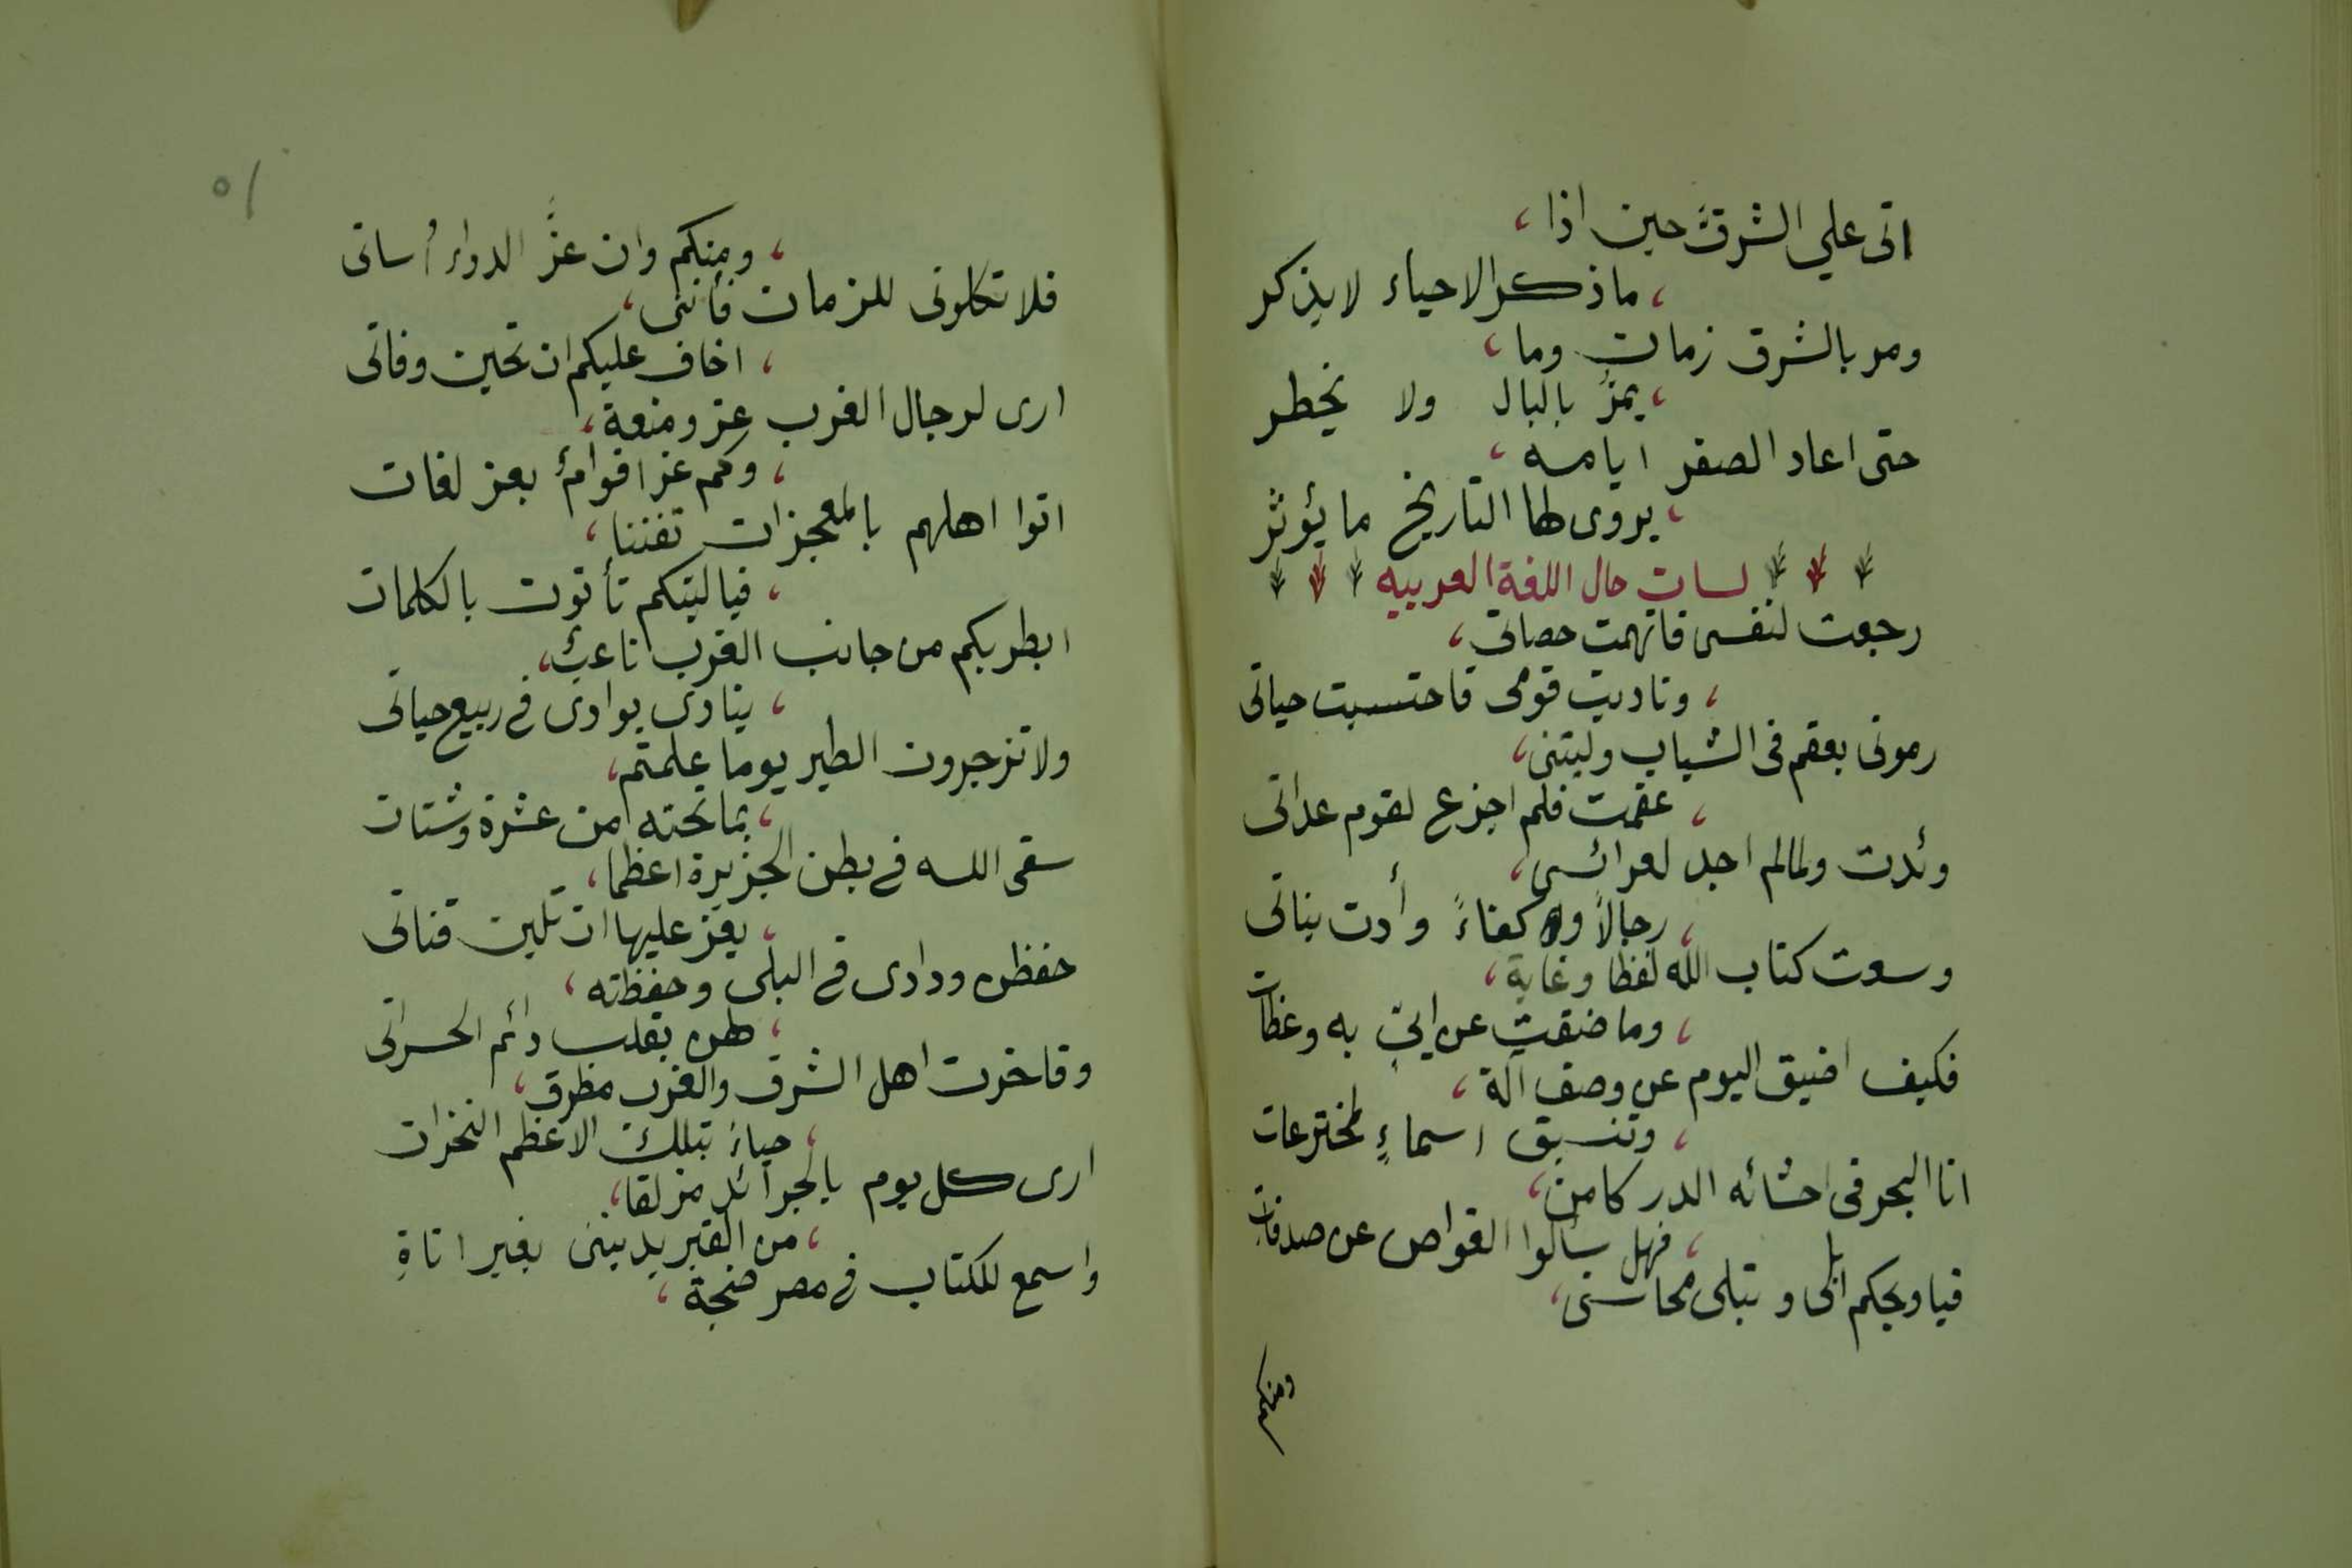 اتى علي الشرق حين اذا،
، ماذكر الاحياء لايذكر
ومر بالشرق زمان وما،
، يمرُّ بالبال ولا يخطر
حتى اعاد الصفر ايامه،
، يروى لها التاريخ ما يؤثر
لسان حال اللغة العربيه
رجعت لنفسى فاتهمت حصاتى،
، وناديت قومى فاحتسبت حياتى
رمونى بعقم فى الشباب وليتنى،
، عقمت فلم اجزع لقوم عداتى
وئدت ولمالم اجد لعرائسى،
، رجالاً واكفاءً وأدت بناتى
وسعت كتاب الله لفظا وغاية،
، وما ضقت عن اىٍ به وعظات
فكيف اضيق اليوم عن وصف آلة،
، وتنسيق اسماءٍ لمخترعات
انا البحر فى احشائه الدر كامن،
، فهل سألوا الغواص عن صدفاتى
فياويحكم ابلى وتبلى محاسنى،
ومنكم
٥١
، ومنكم وان عزَّ الدواءُ أساتى
فلا تكلونى للزمان فأننى،
، اخاف عليكم ان تحين وفاتى
ارى لرجال الغرب عز ومنعة،
، وكم عز اقوامٌ بعز لغات
اتوا اهلهم بالمعجزات تفننا،
، فياليتكم تأتون بالكلمات
ايطربكم من جانب الغرب ناعبٌ،
، ينادى بوادى فى ربيع حياتى
ولا تزجرون الطير يوما علمتم،
، بماتحته من عثرة وشتات
سقى الله فى بطن الجزيرة اعظما،
، يعز عليها ان تلين قناتى
حفظن ودادى فى البلى وحفظته،
، لهن بقلب دائم الحسراتى
وفاخرت اهل الشرق والغرب مطرق،
، حياءً بتلك الاعظم النخرات
ارى كل يوم بالجرائد مزلقا،
، من القبر يدنينى بغير اناةِ
واسمع للكتاب فى مصر ضجة،